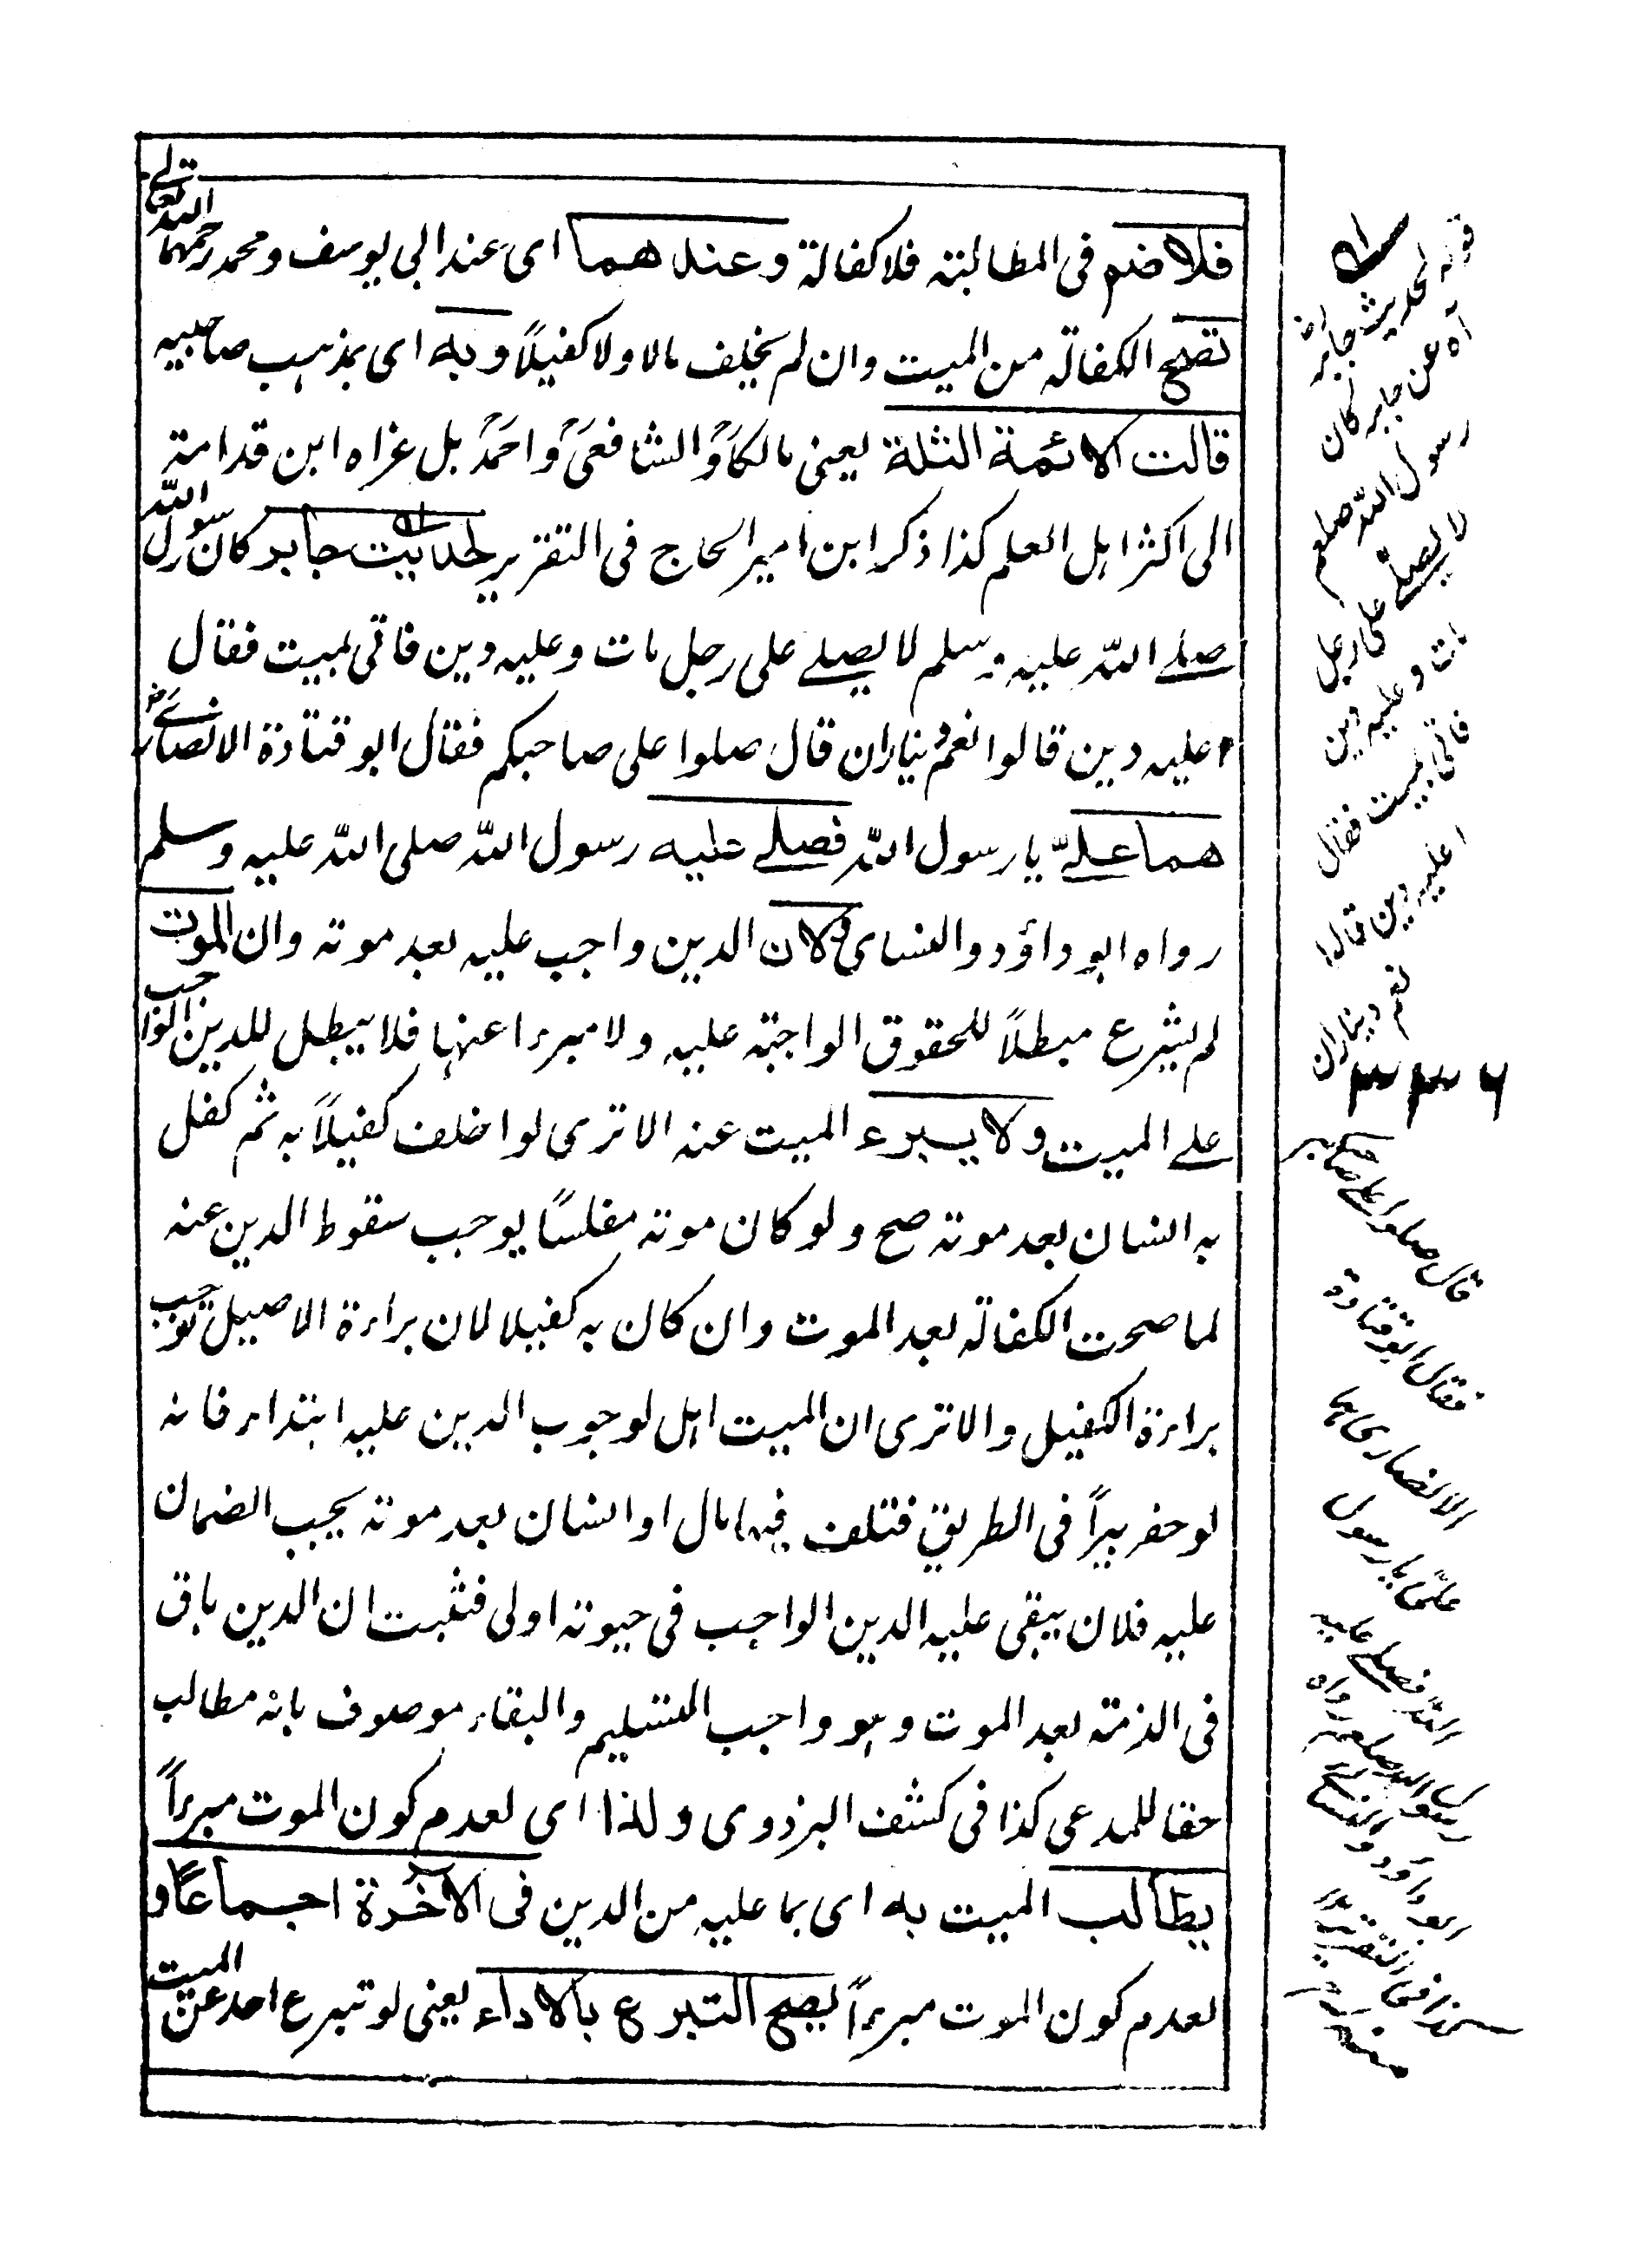 فلا ضم فى المطالبته فلا كفالة وعندهما اى عند ابي يوسف ومحمد رحمهما الله تعالے
تصح الكفالة من الميت وان لم يخلف مالا ولا كفيلاً وبه اى بمذهب صاحبيه
قالت الائمة الثلثة يعنى مالكاً والشافعى واحمد بل عزاه ابن قدامة
الى اكثر اهل العلم كذا ذكر ابن امير الحاج فى التقرير لحديث جابر كان رسول الله
صلے الله عليه وسلم لا يصلے على رجل مات وعليه دين فاتى بميت فقال
اعليه دين قالوا نعم ديناران قال صلوا على صاحبكم فقال ابو قتادة الانصارے رض
هما علىّ يا رسول الله فصلے عليه رسول الله صلى الله عليه وسلم
رواه ابو داؤد والنساى ولان الدين واجب عليه بعد موته وان الموت
لم يشرع مبطلاً للحقوق الواجبة عليه ولا مبرءا عنها فلا يبطل للدين الواجب
علے الميت ولا يبرء الميت عنه الا ترى لو اخلف كفيلاً به ثم كفل
به انسان بعد موته صح ولو كان موته مفلسًا يوجب سقوط الدين عنه
لما صحت الكفالة بعد الموت وان كان به كفيلا لان براءة الاصيل توجب
براءة الكفيل والا ترى ان الميت اهل لوجوب الدين عليه ابتداء فانه
لو حفر بيراً فى الطريق فتلف فيها مال او انسان بعد موته يجب الضمان
عليه فلان يبقى عليه الدين الواجب فى حيوته اولى فثبت ان الدين باق
فى الذمة بعد الموت وهو واجب التسليم والبقاء موصوف بانه مطالب
حقا للمدعى كذا فى كشف البزدوى ولذا اى لعدم كون الموت مبرءاً
يطالب الميت به اى بما عليه من الدين فى الآخرة اجماعًا و
لعدم كون الموت مبرءاً يصح التبرع بالاداء يعنى لو تبرع احد عن الميت
قوله لحديث جابر رض
آه عن جابر كان
رسول الله صلعم
لا يصلے على رجل
مات وعليه دين
فاتى بميت فقال
اعليه دين قالوا
نعم ديناران
قال صلوا على صاحبكم
فقال ابو قتادة
الانصارى هما
علىّ يا رسول
الله فصلے عليه
رسول الله صلعم رواه
ابو داؤد والنسائے
كذا فى التقرير